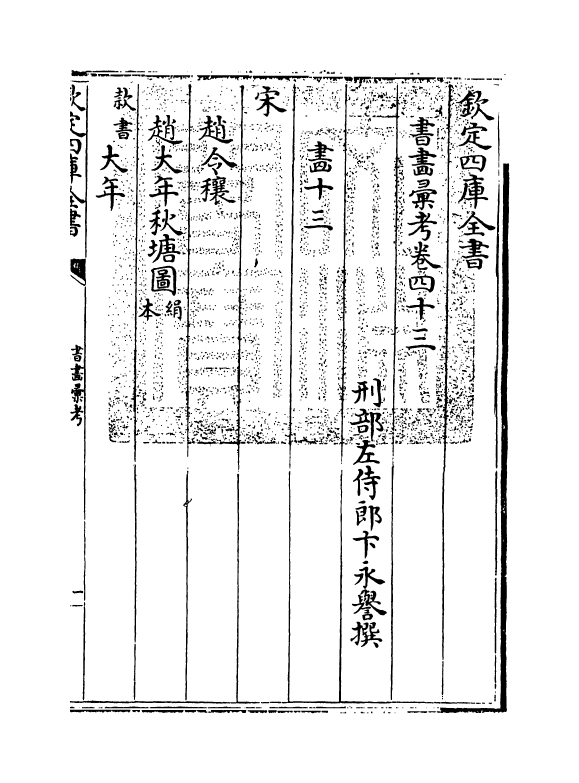 欽定四庫全書
書畫彙考卷四十三
刑部左侍郎卞永譽撰
畫十三
宋
趙令穰
趙大年秋塘圖絹本
款書大年
欽定四庫全書
書畫彙考
一